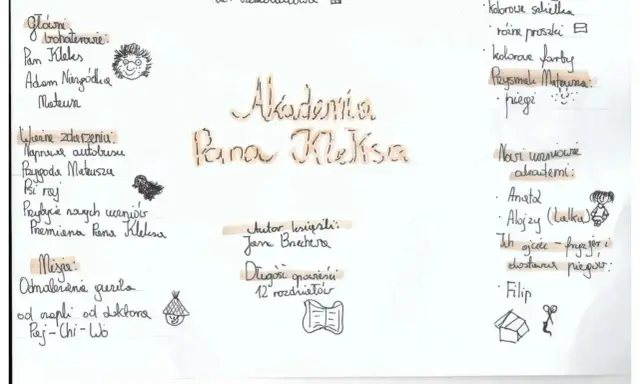 Główni
bohaterowie:
Pan Kleks
Adam Niezgódka
Mateusz
Ważne zdarzenia:
Naprawa autobusu
Przygoda Mateusza
Psi raj
Przybycie nowych uczniów
Przemiana Pana Kleksa
Misja:
Odnalezienie guzika
od czapki od doktora
Paj-Chi-Wo
Akademia
Pana Kleksa
Autor książki:
Jan Brzechwa
Długość opowieści:
12 rozdziałów
· kolorowe szkiełka
· różne proszki
· kolorowe farby
Przysmak Mateusza:
· piegi
Nowi uczniowie
akademii:
· Anatol
· Alojzy (Lalka)
Ich ojciec - fryzjer i
dostawca piegów:
· Filip